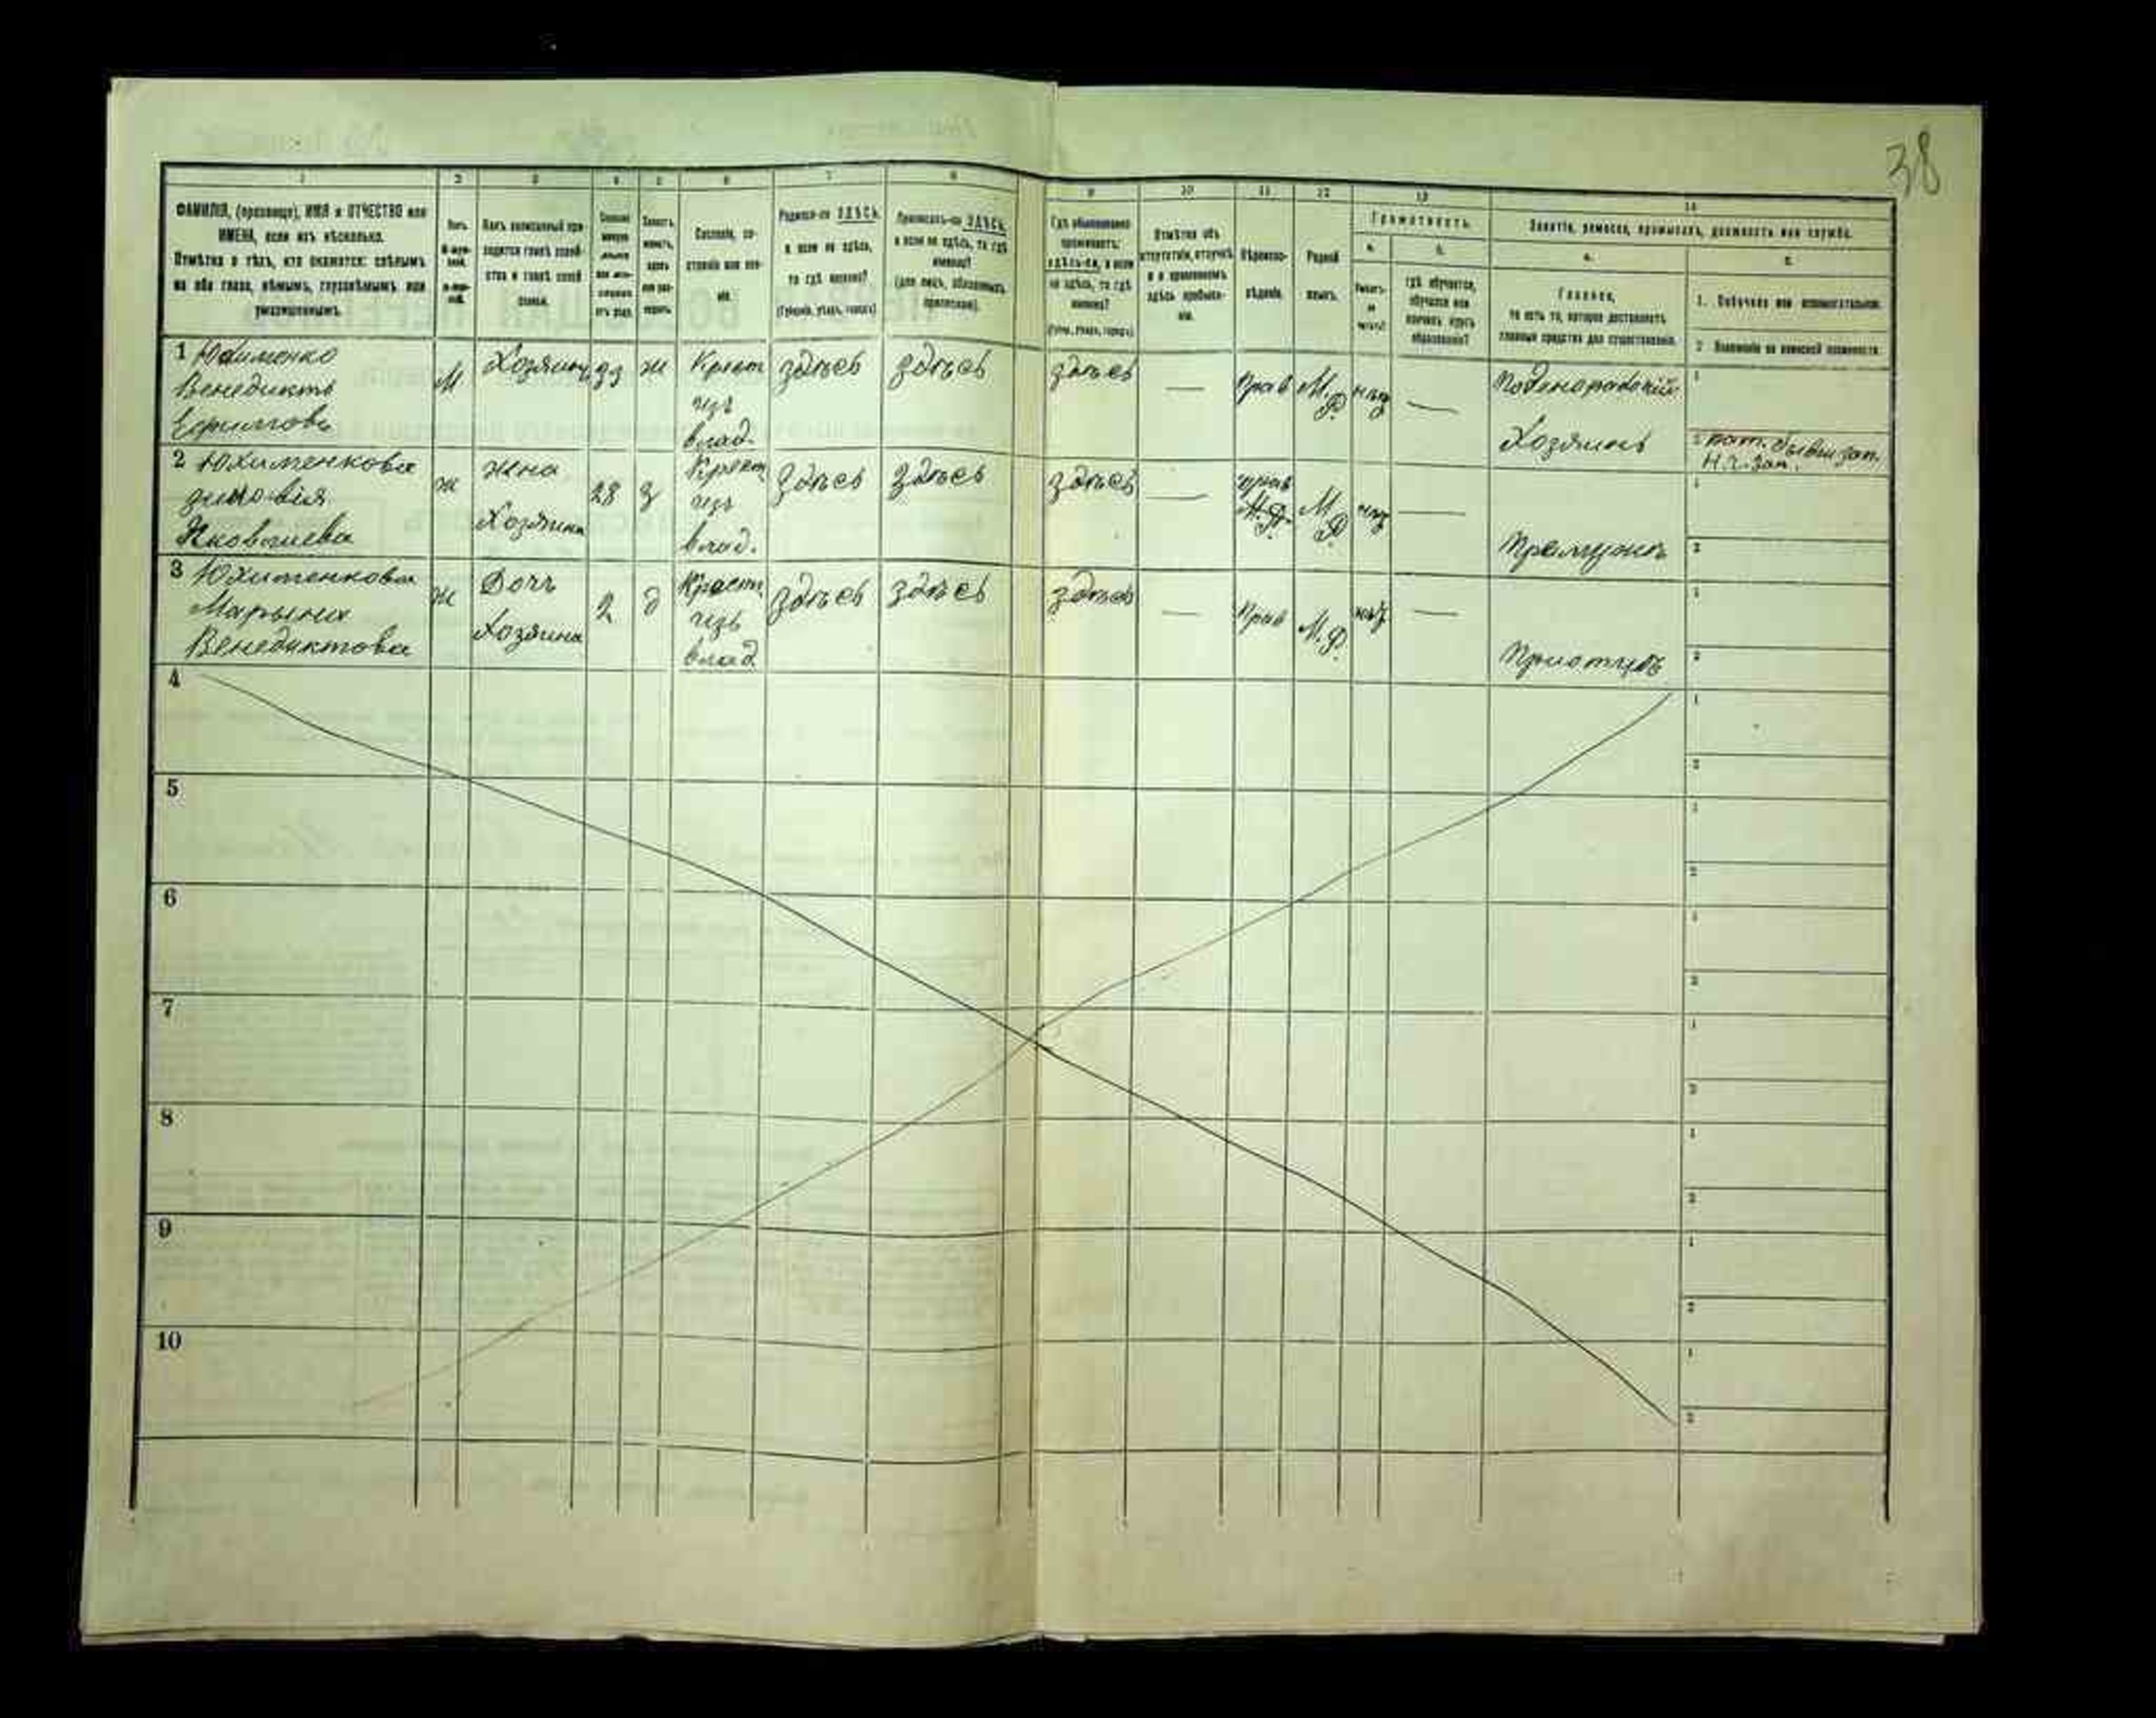 38
1 2 3 4 5 6 7 8 9 10 11 12 13 14
ФАМИЛІЯ, (прозвище), ИМЯ и ОТЧЕСТВО или
ИМЕНА, если ихъ нѣсколько.
Отмѣтка о тѣхъ, кто окажется: слѣпымъ
на оба глаза, нѣмымъ, глухонѣмымъ или
умалишеннымъ.
Сословіе, со-
стояніе или зва-
ніе.
Родился-ли ЗДѢСЬ,
а если не здѣсь,
то гдѣ именно?
(Губернія, уѣздъ, городъ)
Приписанъ-ли ЗДѢСЬ,
а если не здѣсь, то гдѣ
именно?
(для лицъ, обязанныхъ
припискою).
Гдѣ обыкновенно
проживаетъ:
здѣсь-ли, а если
не здѣсь, то гдѣ
именно?
(Губер., уѣздъ, городъ)
Отмѣтка объ
отсутствіи, отлучкѣ
и о временномъ
здѣсь пребыва-
ніи.
Вѣроиспо-
вѣданіе.
Родной
языкъ.
Грамотность.
а.
б.
Умѣетъ-
ли
читать?
гдѣ обучается,
обучался или
кончилъ курсъ
образованія?
Занятіе, ремесло, промыселъ, должность или служба.
а.
Главное,
то есть то, которое доставляетъ
главныя средства для существованія.
1. Побочное или вспомогательное.
2 Положеніе по воинской повинности.
1 Юхименко
Венедиктъ
Ефимовъ
М Хозяинъ 33 ж
Крест
изъ
влад.
здѣсь здѣсь здѣсь — Прав М. Р. нѣтъ —
Хозяинъ
1
2
2 Юхименкова
Зиновія
Яковлева
ж жена
Хозяина
28 з
Крест
изъ
влад.
здѣсь здѣсь здѣсь — прав
М. Р.
М Р. нѣтъ —
При мужѣ
1
2
3 Юхименкова
Марьяна
Венедиктова
ж Дочь
Хозяина
2 д
Крест
изъ
влад.
здѣсь здѣсь здѣсь — Прав М. Р. нѣтъ —
При отцѣ
1
2
4
1
2
5
1
2
6
1
2
7
1
2
8
1
2
9
1
2
10
1
2